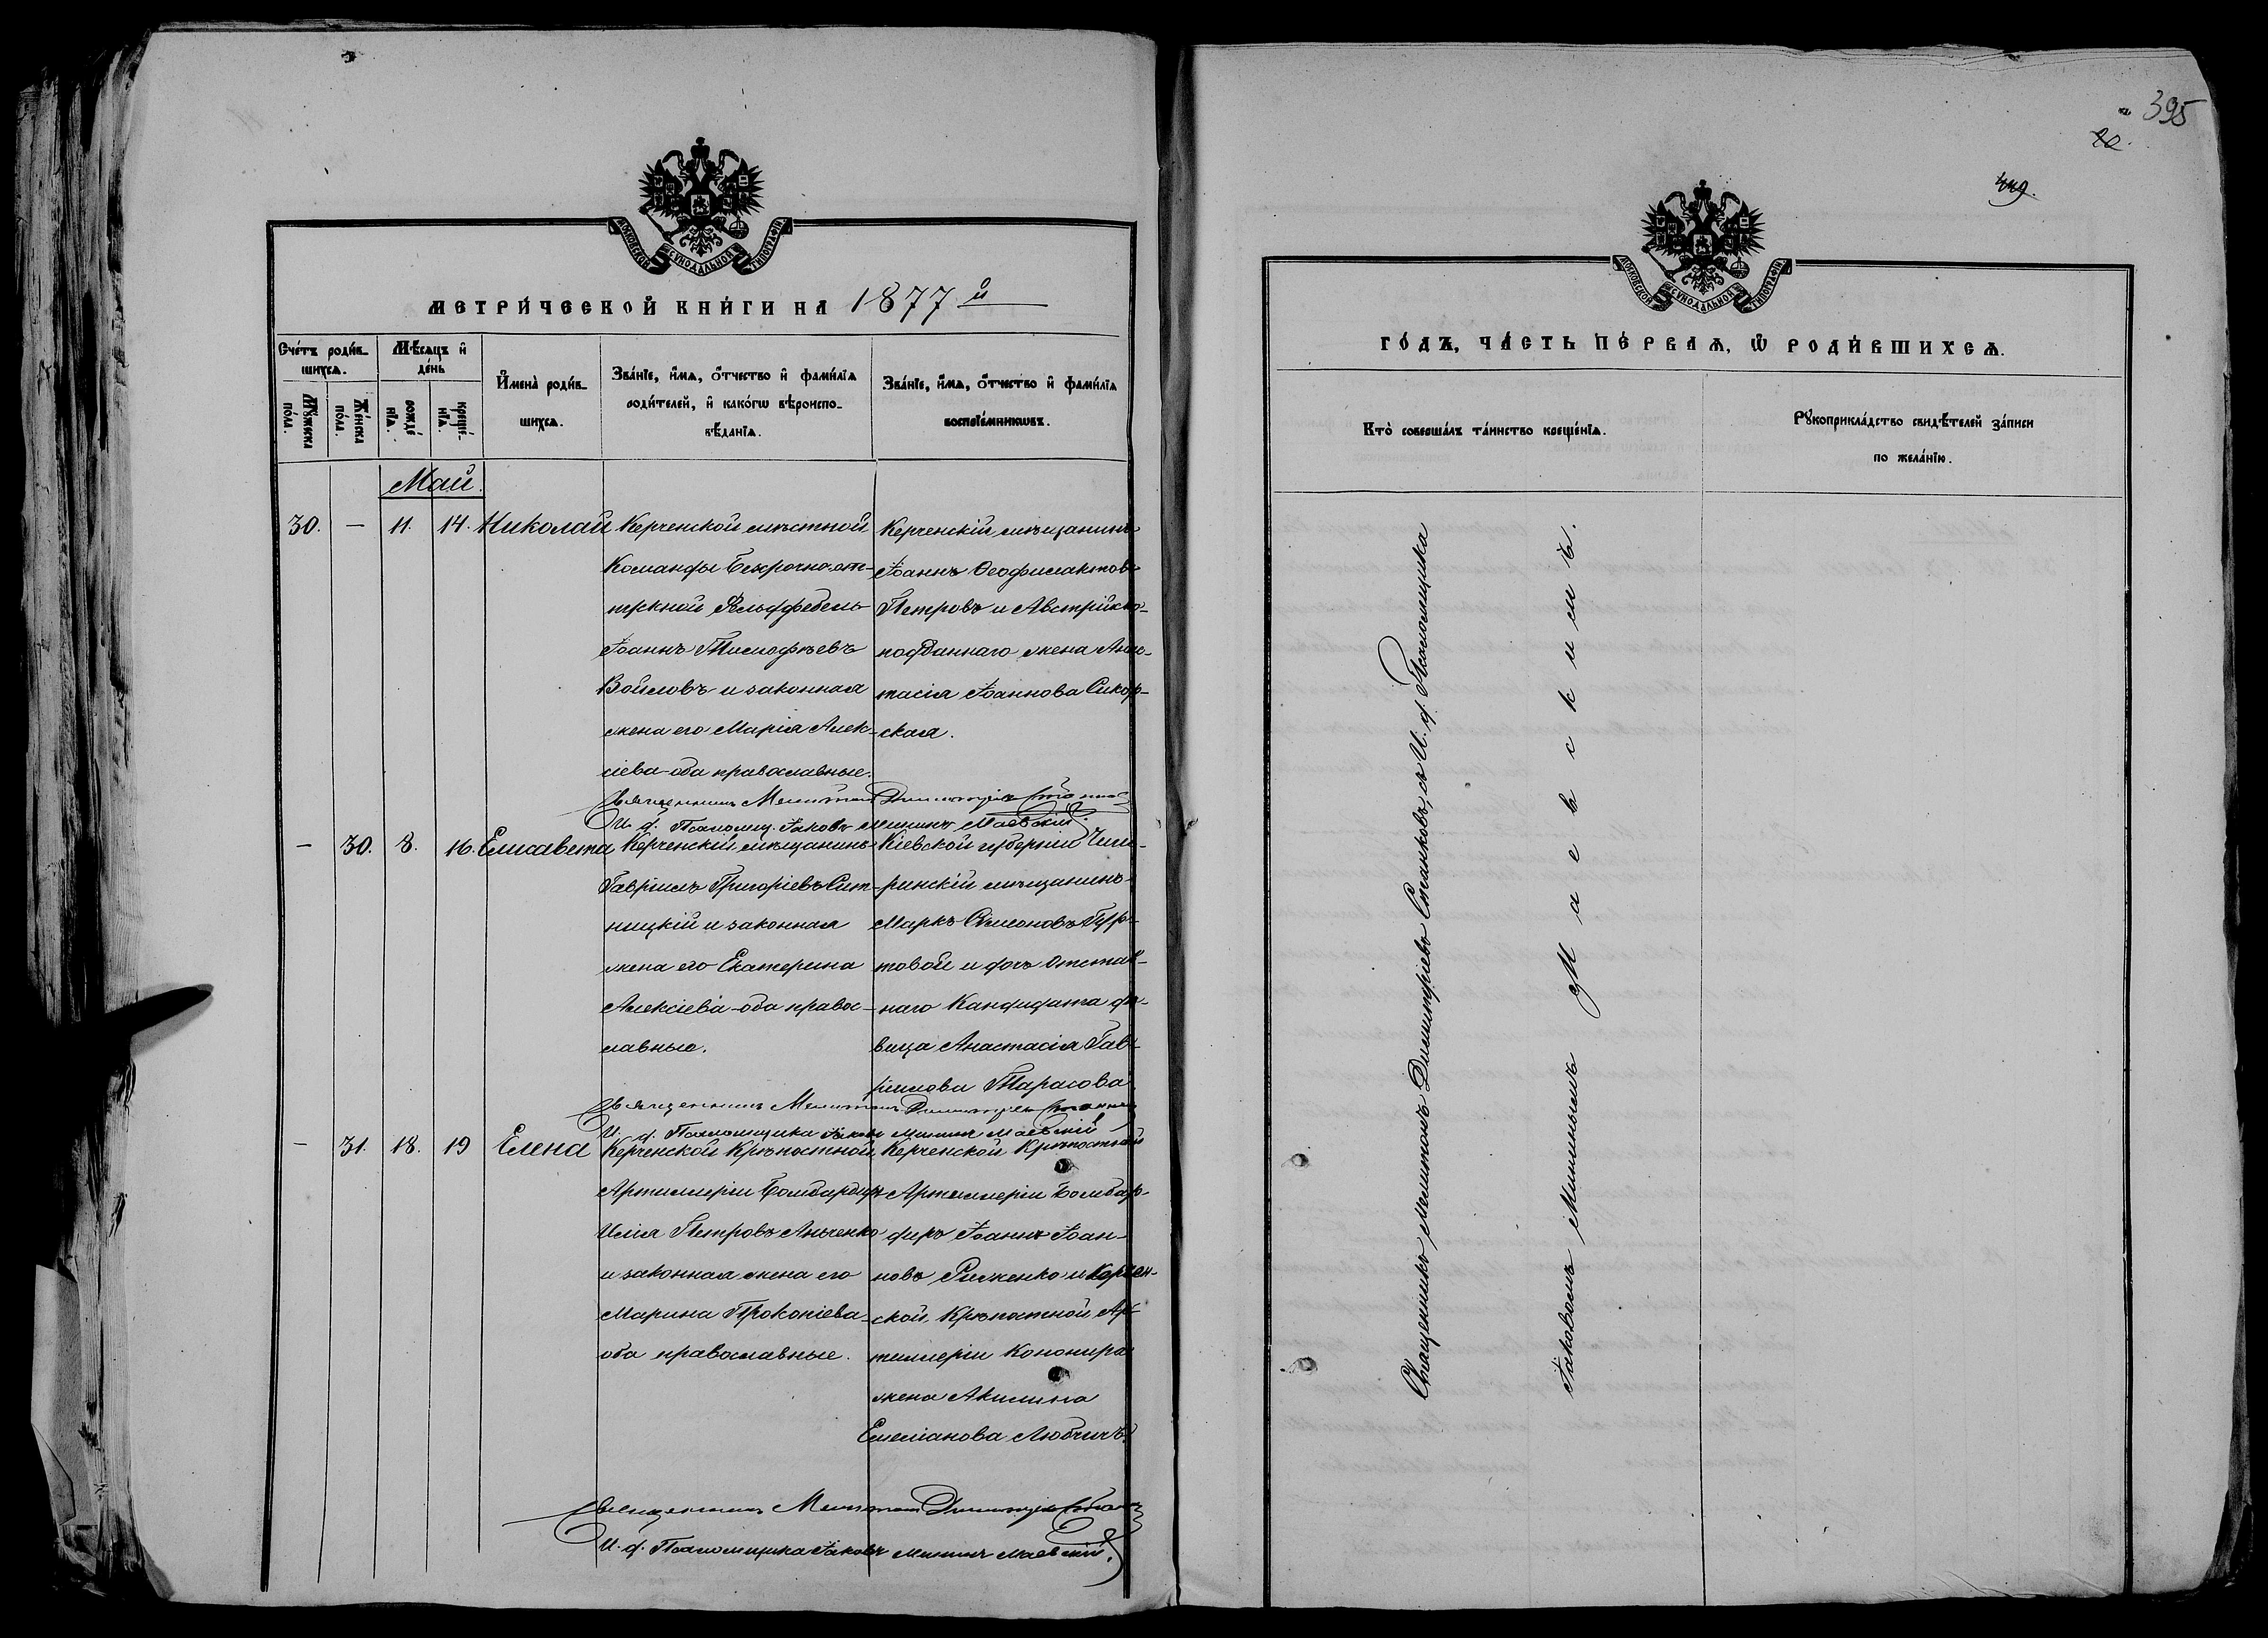 395
МОСКОВСКОЙ СУНОДАЛЬНОЙ ТИПОГРАФІИ
МЕТРИ́ЧЕСКОЙ КНИ́ГИ НА 1877 й
Сче́тъ роди́в-
шихся.
Мѣ́сяцъ и
де́нь
Мꙋ́жеска
по́ла.
Же́нска
по́ла.
рожде́
нїѧ.
креще́-
нїѧ.
Имена̀ роди́в-
шихся.
Зва́нїе, и́мѧ, ѻ́тчество и фами́лїѧ
роди́телей, и како́гѡ вѣроиспо-
вѣ́данїѧ.
Зва́нїе, и́мѧ, ѻ́тчество и фами́лїѧ
воспрїе́мникѡвъ.
Май.
30. — 11. 14. Николай
Керченской мѣстной
Команды Безсрочно-от-
пускной Фельдфебель
Іоаннъ Тимофѣевъ
Войловъ и законная
жена его Марія Алек-
сіева-оба православные.
Керченскій мѣщанинъ
Іоаннъ Ѳеофилактовъ
Петровъ и Австрійско-
подданнаго жена Анас-
тасія Іоаннова Сикор-
ская.
Священникъ Мелитонъ Димитріевъ
И. д. Псаломщ. Іаковъ Мининъ Маевскій.
— 30. 8. 16. Елисавета
Керченскій мѣщанинъ
Гавріилъ Григоріевъ Сит-
ницкій и законная
жена его Екатерина
Алексіева-оба правос-
лавные.
Кіевской губерніи Чиги-
ринскій мѣщанинъ
Маркъ Симоновъ
товой и дочь Отстав-
наго Кандидата дѣ-
вица Анастасія Гав-
ріилова Тарасова
Священникъ Мелитонъ Димитріевъ
И. д. Псаломщика Іаковъ Мининъ Маевскій
— 31. 18. 19 Елена
Керченской Крѣпостной
Артиллеріи Бомбардиръ
Илія Петровъ Яньченко
и законная жена его
Марина Прокопіева-
оба православные.
Керченской Крѣпостной
Артиллеріи Бомбар-
диръ Іоаннъ Іоан-
новъ Рыженко и Керчен-
ской Крѣпостной Ар-
тиллеріи Канонира
жена Акилина
Емеліанова Любчичъ.
Священникъ Мелитонъ Димитріевъ
И. д. Псаломщика Іаковъ Мининъ Маевскій.
МОСКОВСКОЙ СУНОДАЛЬНОЙ ТИПОГРАФІИ
ГО́ДЪ, ЧА́СТЬ ПЕ́РВАѦ, Ѡ РОДИ́ВШИХСѦ.
Кто̀ соверша́лъ та́инство креще́нїѧ.
Рꙋкоприкла́дство свидѣ́телей за́писи
по жела́нїю.
Священникъ Мелитонъ Димитріевъ Станковъ, съ И. д. Псаломщика
Іаковомъ Мининымъ Маевскимъ.